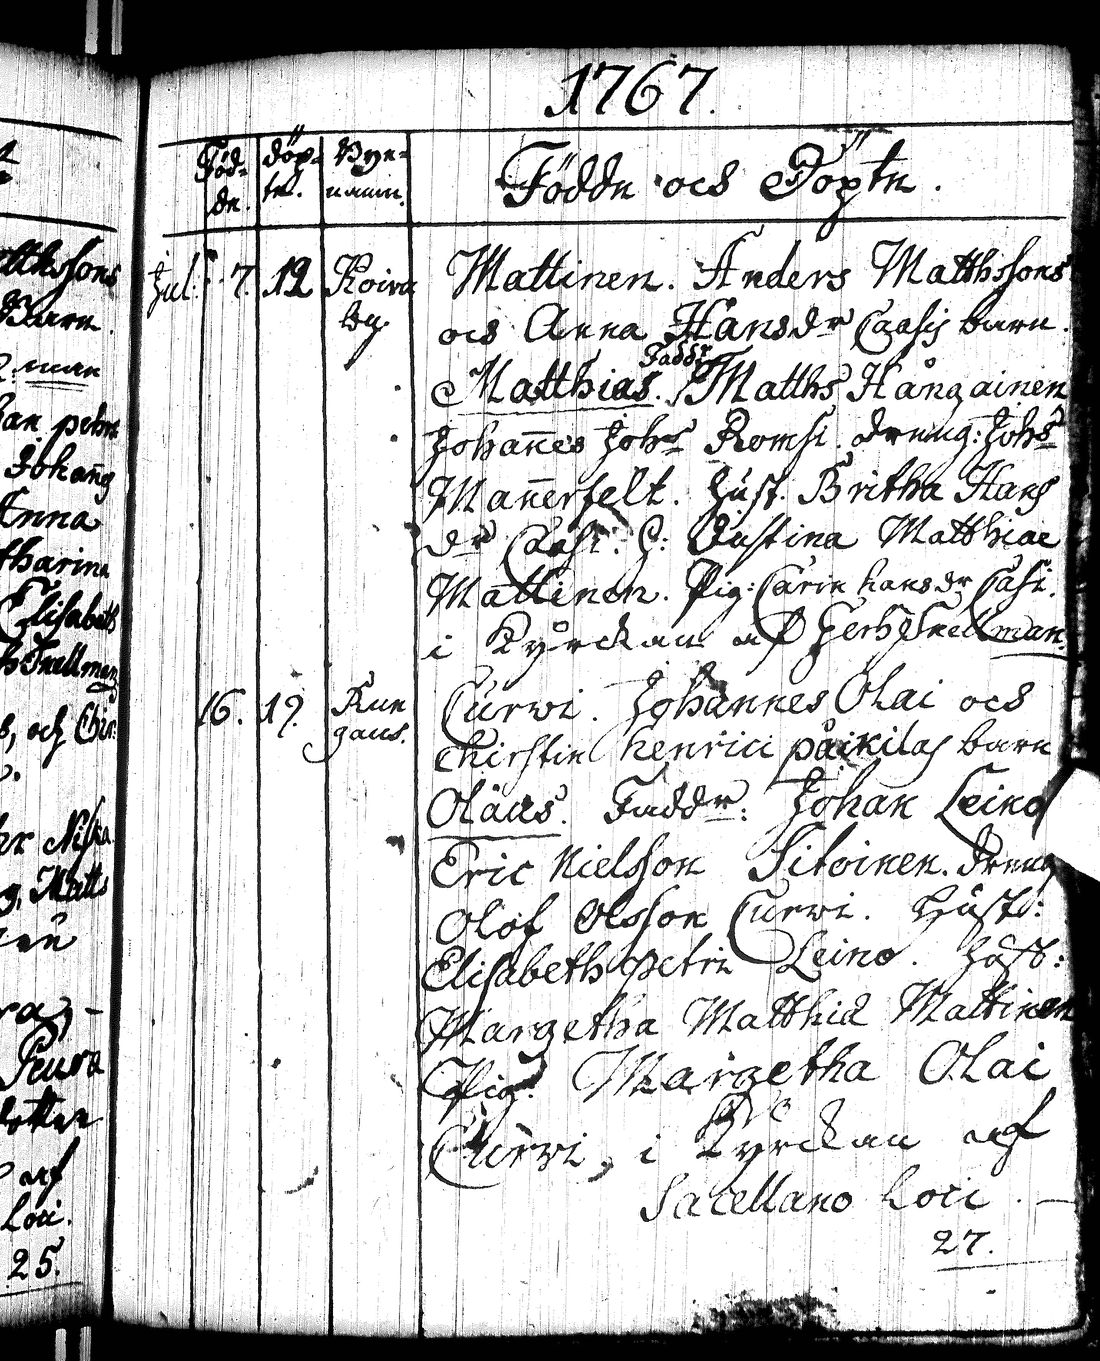 1767.
Föd= döp= Bye=
de. te. namn. Födde och Döpte.
Jul: 7. 12 Koiva Mattinen. Anders Matthssons
by. och Anna Hansdr Caasis barn.
Faddr
Matthias. Matths Hångainen
Johan̄es Johs Romsi. dreng: Johs
Man̄erfelt. Hust. Britha Hans
dr Caasi. H: Justina Matthiae
Mattinen. Pig: Carin hansdr Casi.
i Kyrckan af Gerh Snellman.
16. 19. Kun Curwi. Johannes Olai och
gaus. Chirstin henrici päikilas barn
Olaus. Faddr: Johan Leino
Eric Nielsson Sitoinen. dreng
Olof Olsson Curwi. Hust:
Elisabeth Petri Leino. Hust:
Margetha Matthiæ Mattinen
Pig: Margetha Olai
Curwi, i Kyrckan af
Sacellano Loci.
27.
atthssons
Barn.
man
an petri
Johans
Anna
tharina
Elisabeth
Snellman
och Chir:
Niska
Matts
Peura
af
Loci.
25.